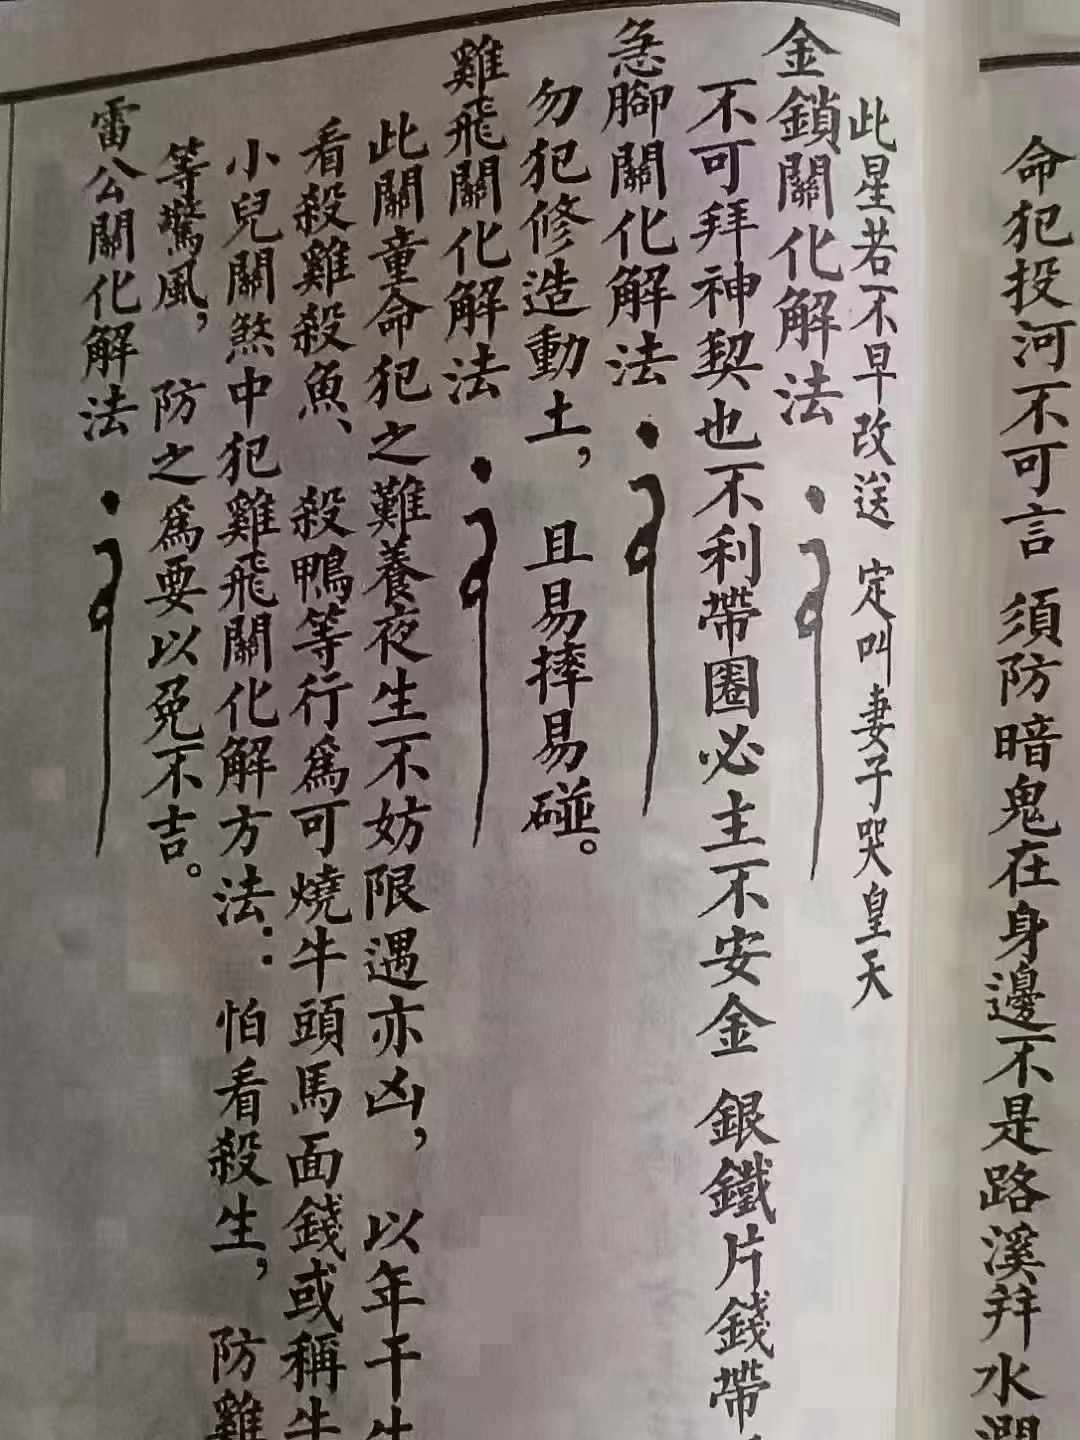 命犯投河不可言 須防暗鬼在身邊不是路溪拜水
此星若不早改送 定叫妻子哭皇天
金鎖關化解法
不可拜神契也不利帶圈必主不安金 銀鐵片錢帶
急腳關化解法
勿犯修造動土, 且易摔易碰。
雞飛關化解法
此關童命犯之難養夜生不妨限遇亦凶, 以年干生
看殺雞殺魚、 殺鴨等行為可燒牛頭馬面錢或稱牛
小兒關煞中犯雞飛關化解方法: 怕看殺生, 防雞
等驚風, 防之為要以免不吉。
雷公關化解法